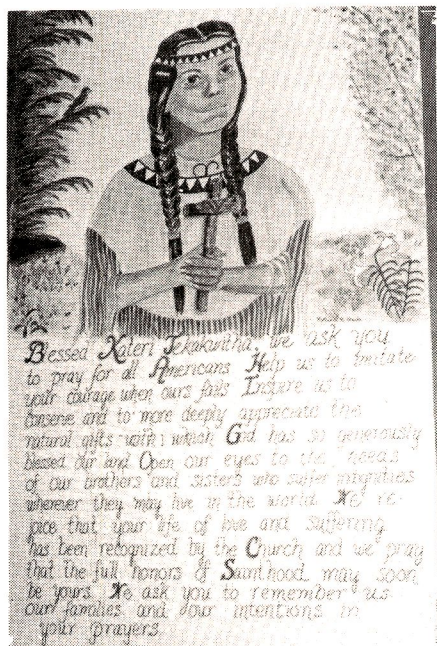 Blessed Kateri Tekakwitha, we ask you
to pray for all Americans Help us to imitate
your courage when ours fails Inspire us to
conserve and to more deeply appreciate the
natural gifts with which God has so generously
blessed our land Open our eyes to the needs
of our brothers and sisters who suffer indignities
wherever they may live in the world We re-
joice that your life of love and suffering
has been recognized by the Church and we pray
that the full honors of Sainthood may soon
be yours We ask you to remember us
our families and our intentions in
your prayers